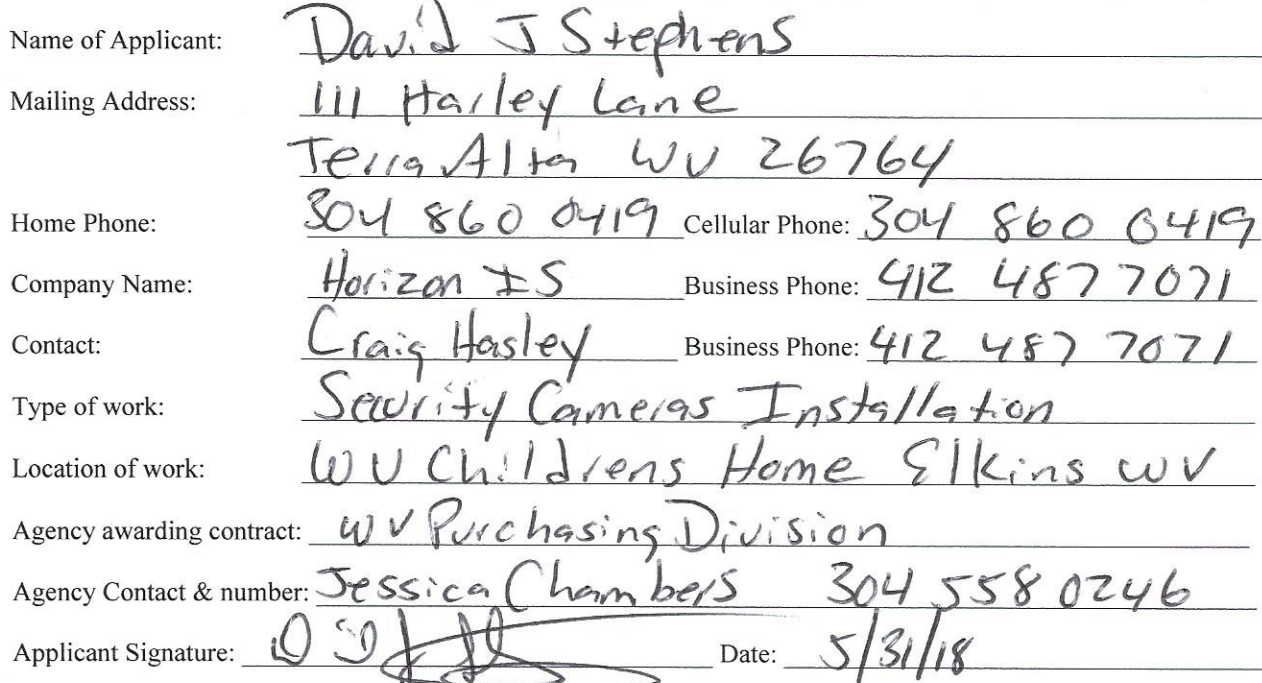 Name of Applicant: David J Stephens
Mailing Address: 111 Harley Lane
Terra Alta WV 26764
Home Phone: 304 860 0419 Cellular Phone: 304 860 0419
Company Name: Horizon IS Business Phone: 412 487 7071
Contact: Craig Hasley Business Phone: 412 487 7071
Type of work: Security Cameras Installation
Location of work: WV Childrens Home Elkins WV
Agency awarding contract: WV Purchasing Division
Agency Contact & number: Jessica Chambers 304 558 0246
Applicant Signature: Date: 5/31/18